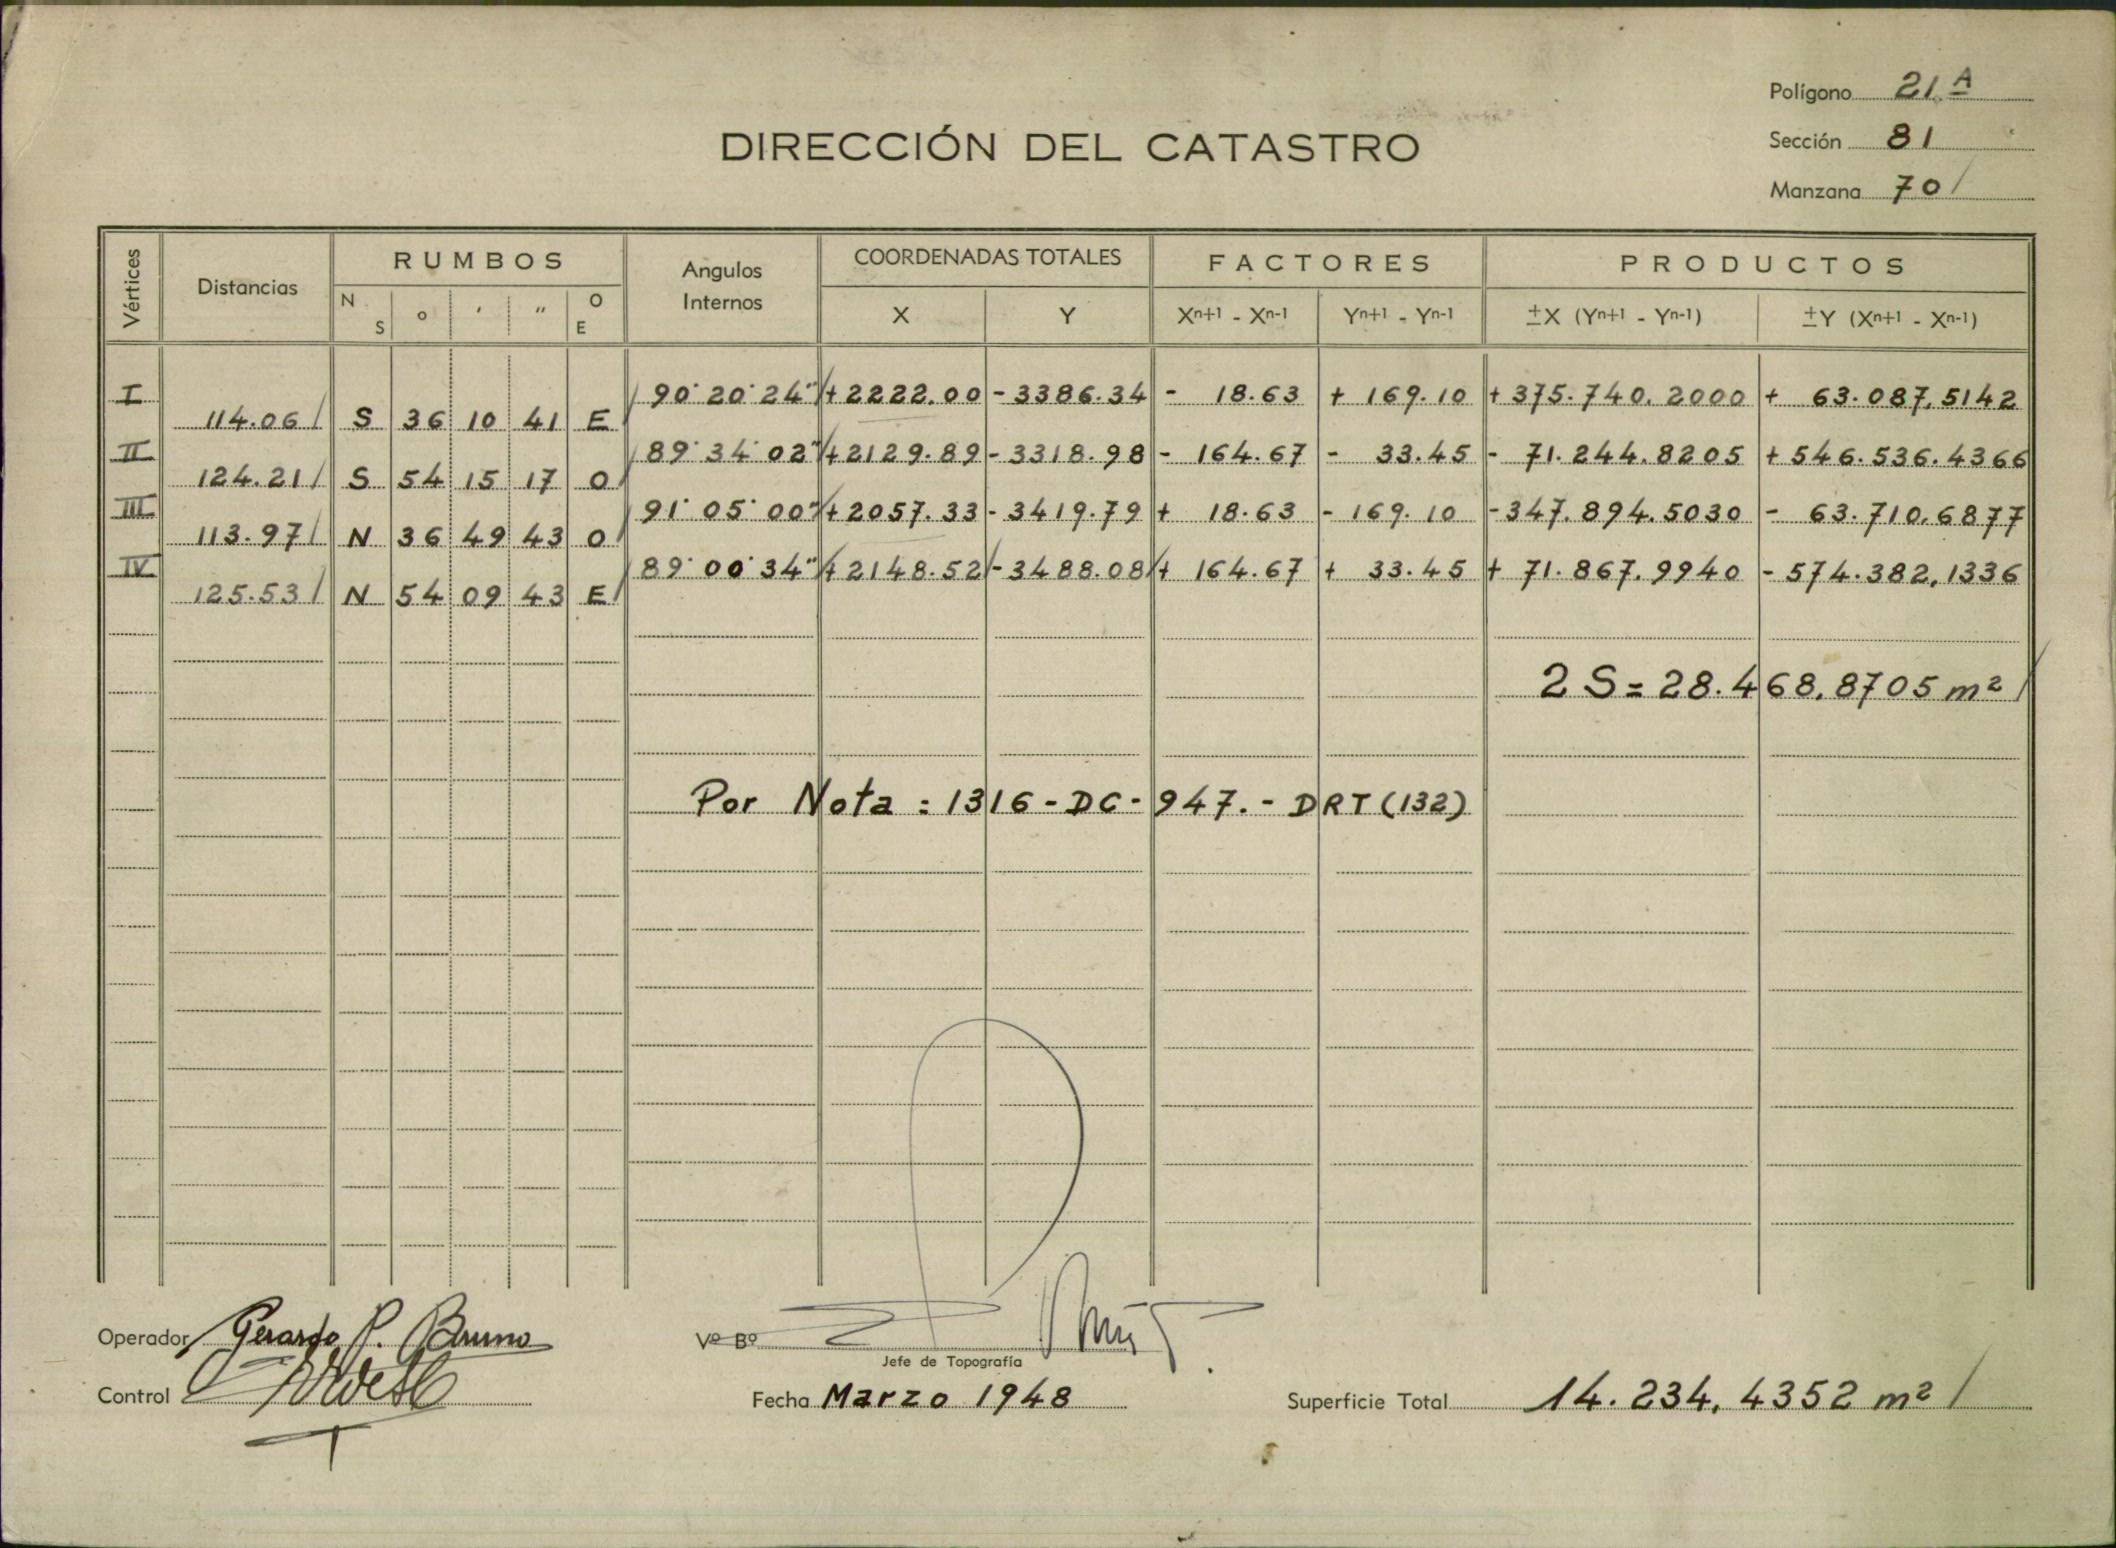 Polígono 21.A
DIRECCIÓN DEL CATASTRO
Sección 81
Manzana 70
Vértices Distancias RUMBOS Angulos Internos COORDENADAS TOTALES FACTORES PRODUCTOS
N S o ' " O E X Y Xn+1 - Xn-1 Yn+1 - Yn-1 ±X (Yn+1 - Yn-1) ±Y (Xn+1 - Xn-1)
I 90° 20' 24" +2222.00 -3386.34 - 18.63 + 169.10 +375.740.2000 + 63.087,5142
114.06 S 36 10 41 E
II 89° 34' 02" +2129.89 -3318.98 - 164.67 - 33.45 - 71.244.8205 +546.536.4366
124.21 S 54 15 17 O
III 91° 05' 00" +2057.33 -3419.79 + 18.63 - 169.10 -347.894.5030 - 63.710.6877
113.97 N 36 49 43 O
IV 89° 00' 34" +2148.52 -3488.08 + 164.67 + 33.45 + 71.867.9940 - 574.382,1336
125.53 N 54 09 43 E
2 S = 28.468.8705 m²
Por Nota : 1316 - DC - 947. - DRT (132)
Operador Gerardo P. Bruno
Vº Bº
Jefe de Topografía
Control
Fecha Marzo 1948
Superficie Total 14.234,4352 m²